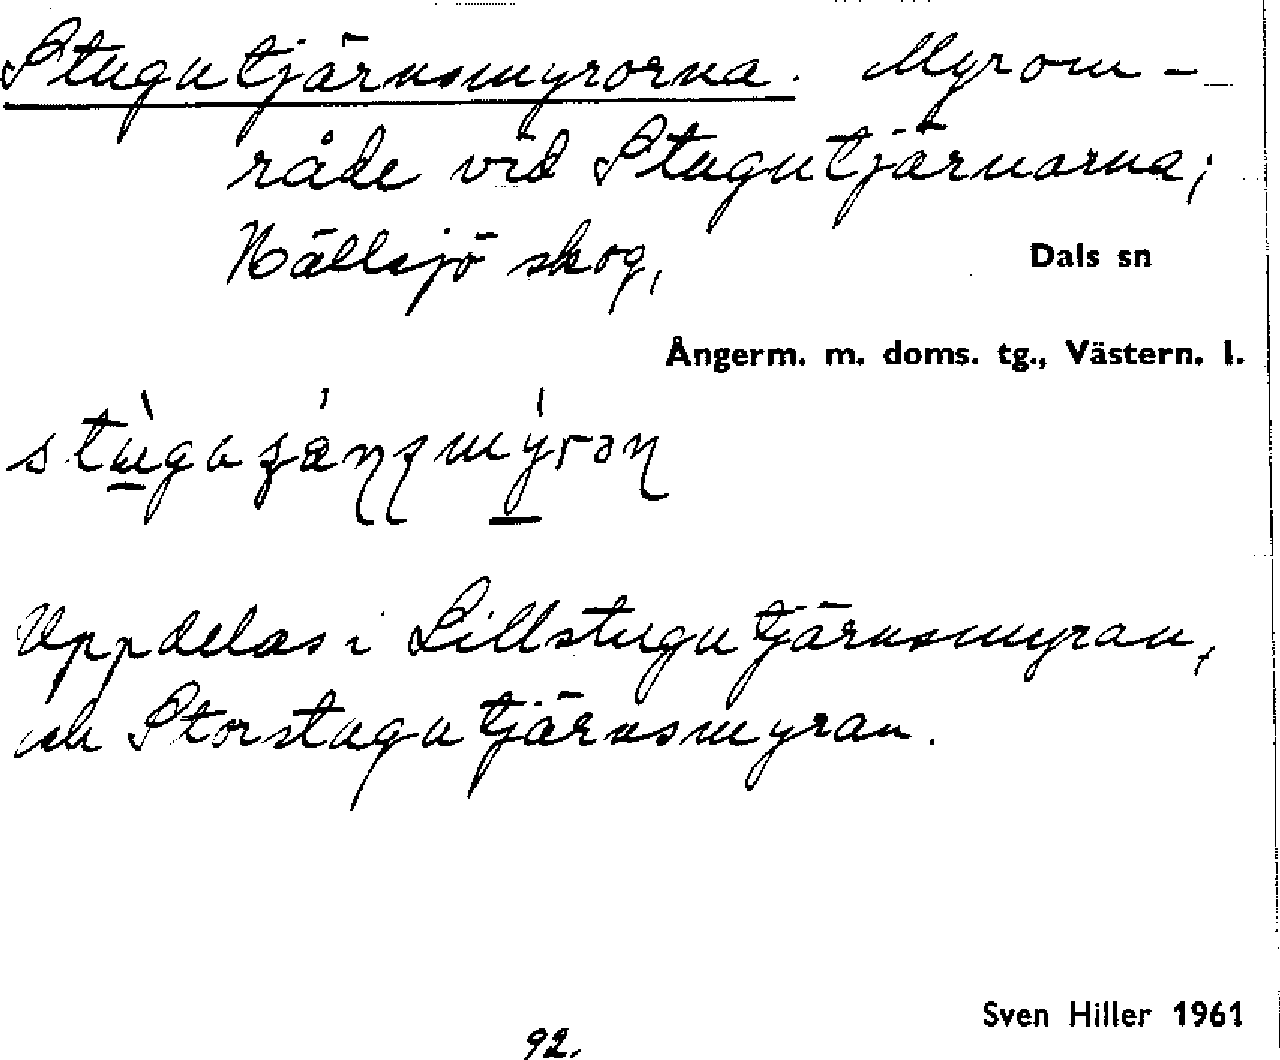 Stugutjärnsmyrorna. Myrom-
råde vid Stugutjärnarna;
Hällsjö skog,
Dals sn
Ångerm. m. doms. tg., Västern. l.
Uppdelas i Lillstugutjärnsmyran,
och Storstugutjärnsmyran.
Sven Hiller 1961
92.